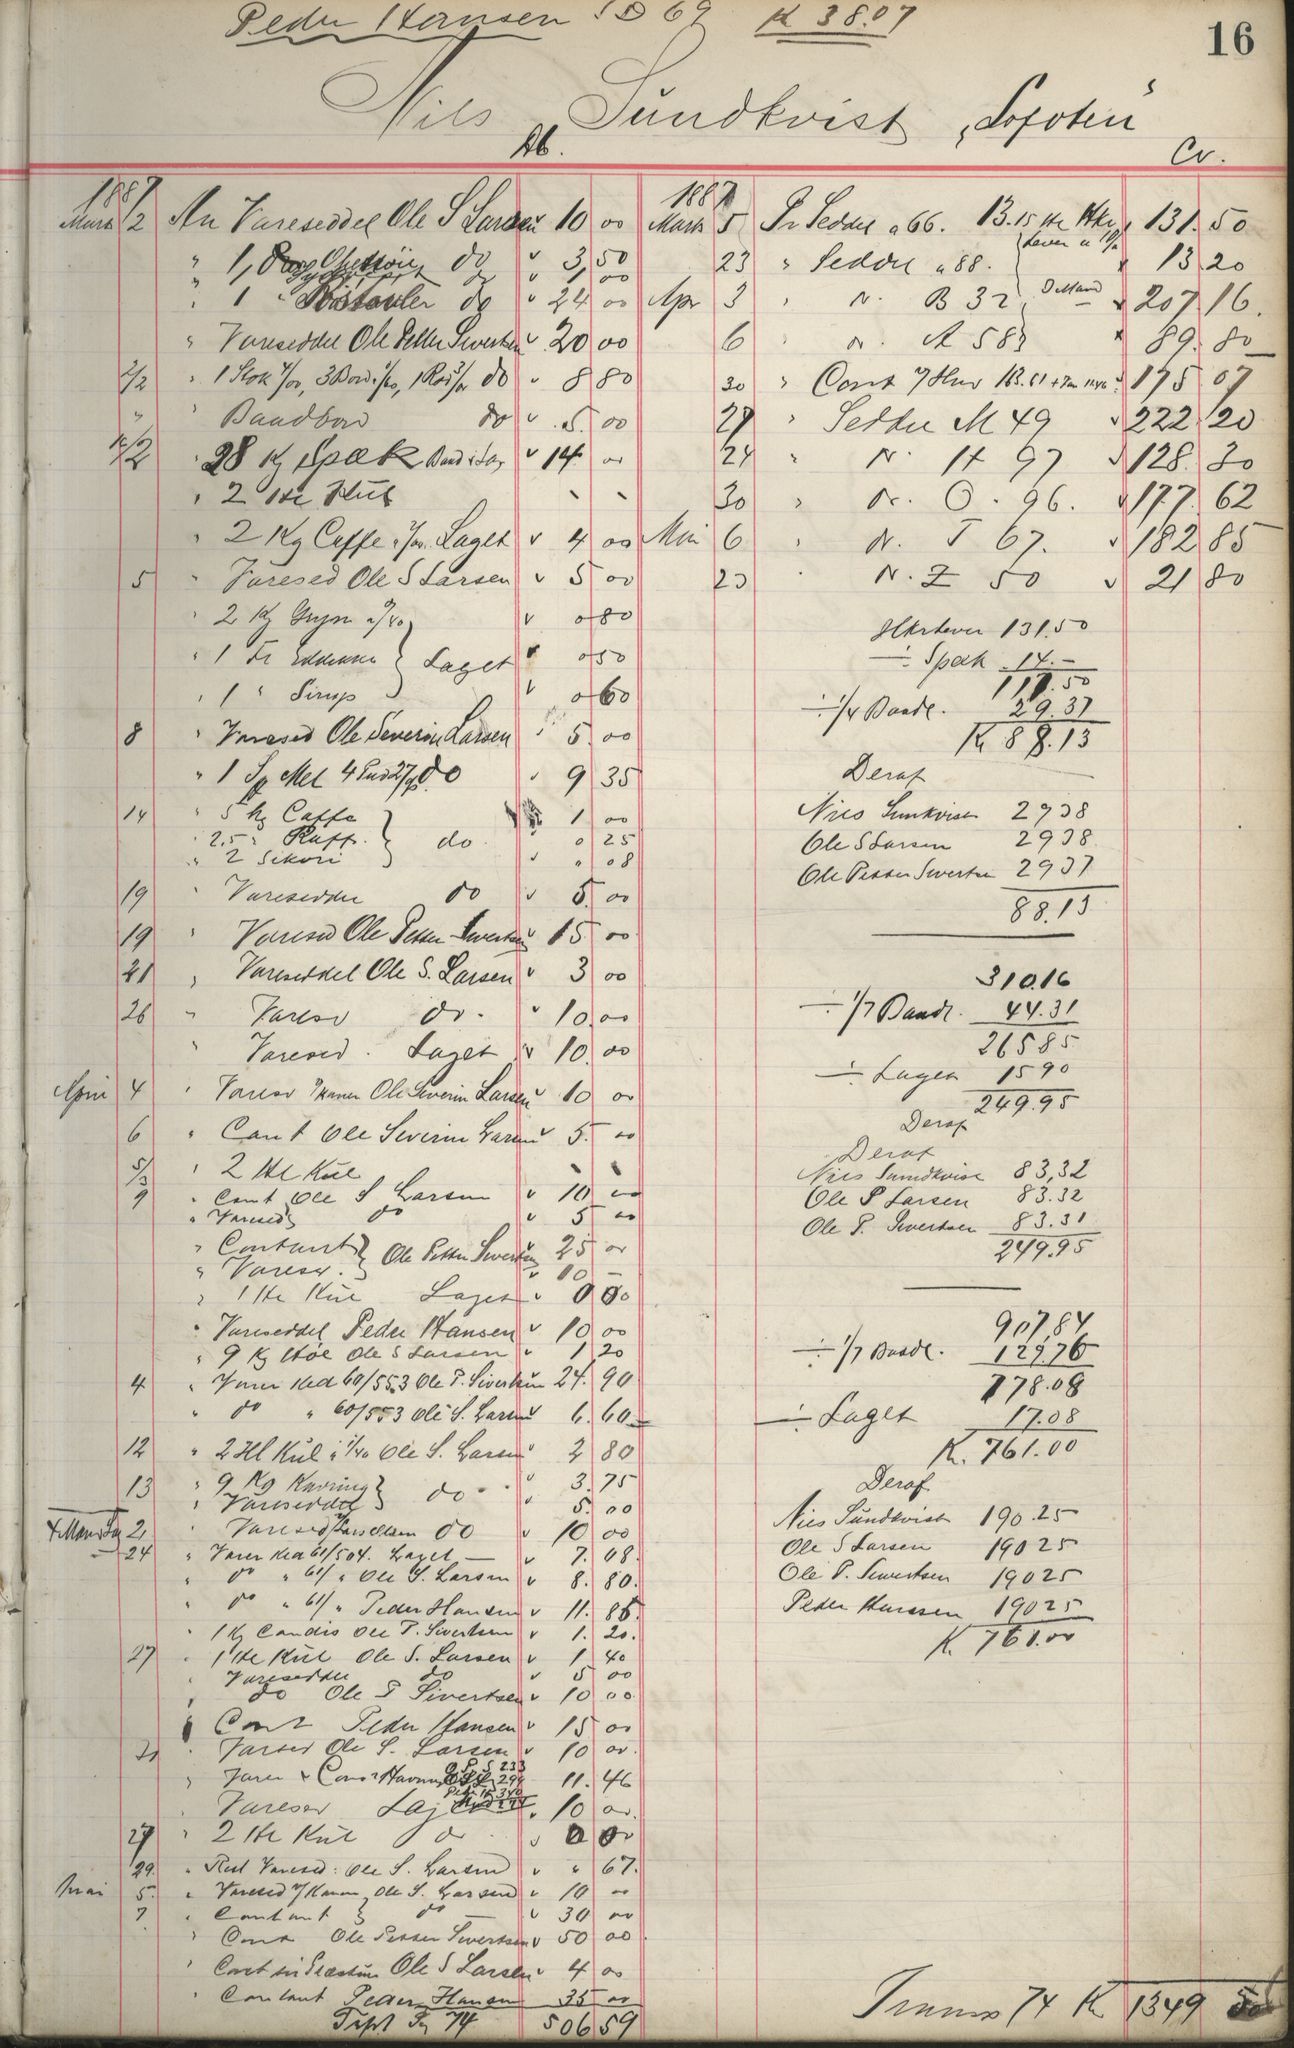 Peder Hansen S D 69 K 38.07
16
Nils Sundkvist „Lofoten"
Db. Cr.
1887
Marts 1/2 An Vareseddel Ole S Larsen 10 00
" 1 do 3 50
" do 1 00
" 1 " do 24 00
" Vareseddel Ole Petter Sivertsen 20 00
2/2 " do 8 80
" " Baadbord do 5 00
" 28 Kg Spæk 14 00
" 2 Hl Kül
" 2 Kg Caffe Laget 4 00
5 " Varesed Ole S Larsen 5 00
" 2 Kg Gryn 0 80
" 1 Fl Eddikke } Laget 0 50
" 1 " Sirup 0 60
8 " Varesed Ole Severin Larsen 5 00
" 1 Sp Mel do 9 35
14 " 5 hg Caffe 1 00
2,5 " } do 0 25
" 2 Sikori " 08
19 " Vareseddel do 5 00
19 " Varesed Ole Petter Sivertsen 15 00
21 " Vareseddel Ole S. Larsen 3 00
26 " Varesed do 10 00
" Varesed. Laget 10 00
April 4 " Varesed Ole Severin Larsen 10 00
6 " Cont Ole Severin Larsen 5 00
5/3 " 2 Hl Kül
9 " Cont Ole S Larsen 10 00
" Varesed do 5 00
" Contant } Ole Petter Sivertsen 25 00
" Varesed. 10 –
" 1 Hl Kül Laget 0 00
" Vareseddel Peder Hansen 10 00
" 9 Kg Höe Ole S Larsen 1 20
4 " Varer Sed 60/553 Ole P. Sivertsen 24. 90
" do " 60/553 Ole S. Larsen 6. 60
12 " 2 Hl Kül a 1/40 Ole S. Larsen 2 80
13 " 9 Kg Kavring } do 3.75
" Vareseddel 5.00
4 Mands Lag 2 " Varesed Lars Olsen do 10 00
24 " Varer Sed 61/504. Laget 7. 08.
" do " 61/ " Ole S. Larsen 8. 80.
" do " 61/ " Peder Hansen 11. 85.
" 1 Kg Candis Ole P. Sivertsen 1. 20.
27 " 1 Hl Kül Ole S. Larsen 1 40
" Vareseddel do 5 00
" do Ole P Sivertsen 10 00
" Cont Peder Hansen 15 00
" Varsed Ole S. Larsen 10 00
" Varer 11. 46
" Varesed Lag 10 00
27 " 2 Hl Kül do 0 00
29. " Rest Varesed: Ole S. Larsen " 67.
Mai 5. " Varesed Ole S. Larsen 10 00
7 " Contant } do 30 00
" Cont Ole Petter Sivertsen 50 00
" Cont Ole S Larsen 4 00
" Contant Peder Hansen 35 00
Tfrt Pag 74 506 59
1887
Marts 5 Pr Seddel a 66. 131. 50
23 " Seddel " 88. 13 20
Apr 3 " N. B 32 207 16.
6 " N. A 583 89. 80
30 " Cont 175 07
27 " Seddel M 49 222 20
24 " N. H 97 128. 30
30 " N. O. 96. 177. 62
Mai 6 " N. T 67. 182 85
23 " N. Z 50 21 80
131.50
÷ Spæk 14.–
117.50
÷ 1/4 Baadl. 29.37
K 88.13
Deraf
Nils Sunkvist 29 38
Ole S Larsen 29 38
Ole Petter Sivertsen 29 37
88.13
310.16
÷ 1/7 Baadl. 44.31
265 85
÷ Laget 15 90
249.95
Deraf
Deraf
Nils Sundkvist 83,32
Ole S Larsen 83.32
Ole P. Sivertsen 83.31
249.95
907.84
÷ 1/7 Baadl. 129.76
778.08
÷ Laget 17.08
K. 761.00
Deraf
Nils Sundkvist 190.25
Ole S Larsen 190 25
Ole P. Sivertsen 190 25
Peder Hansen 190 25
K 761.00
Transp 74 K 1349 50